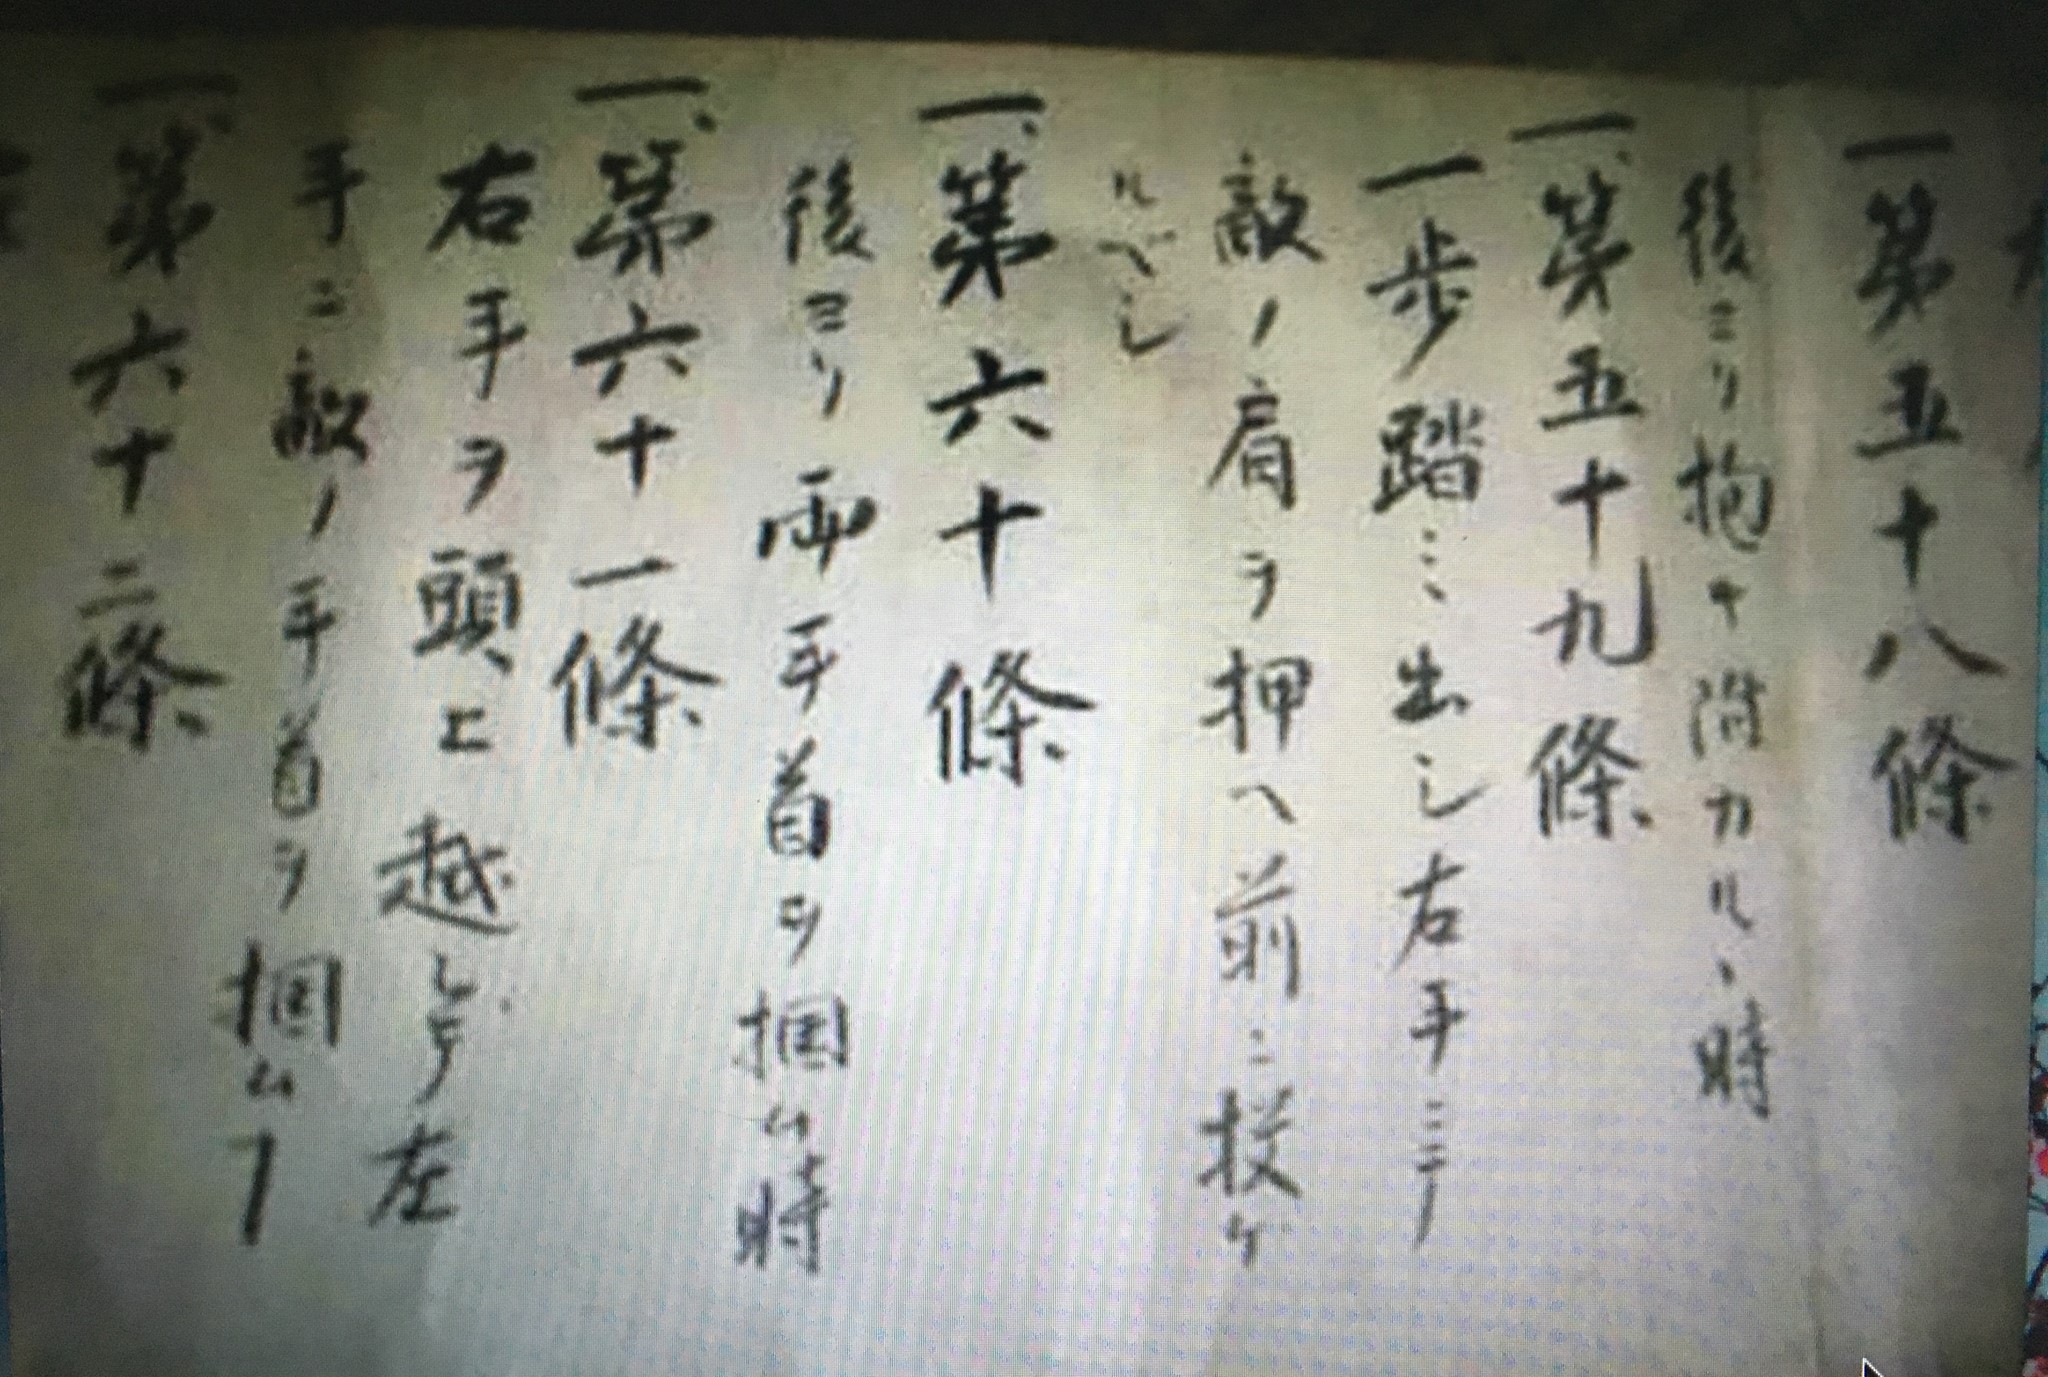 一第五十八條
後ヨリ抱キ附カルヽ時
一、第五十九條
一歩踏ミ出シ右手ニテ
敵ノ肩ヲ押ヘ前ニ投ケ
ルベシ
一、第六十條
後ヨリ両手首ヲ掴ム時
一、第六十一條
右手ヲ頭上越シニテ左
手ニ敵ノ手首ヲ掴ムヿ
一、第六十二條